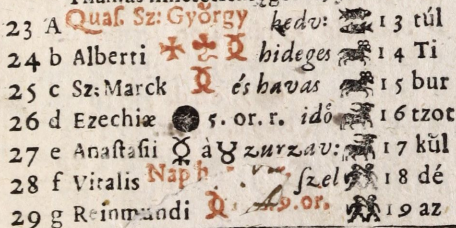 23 A Quaſ. Sz: György kedv: 13 túl
24 b Alberti hideges 14 Ti
25 c Sz: Marck és havas 15 bur
26 d Ezechiæ 5. or. r. idő 16 tzot
27 e Anaſtaſii à ♉ zurzav: 17 kŭl
28 f Vitalis Nap ſzel 18 dé
29 g Reinmundi 9. or. 19 az